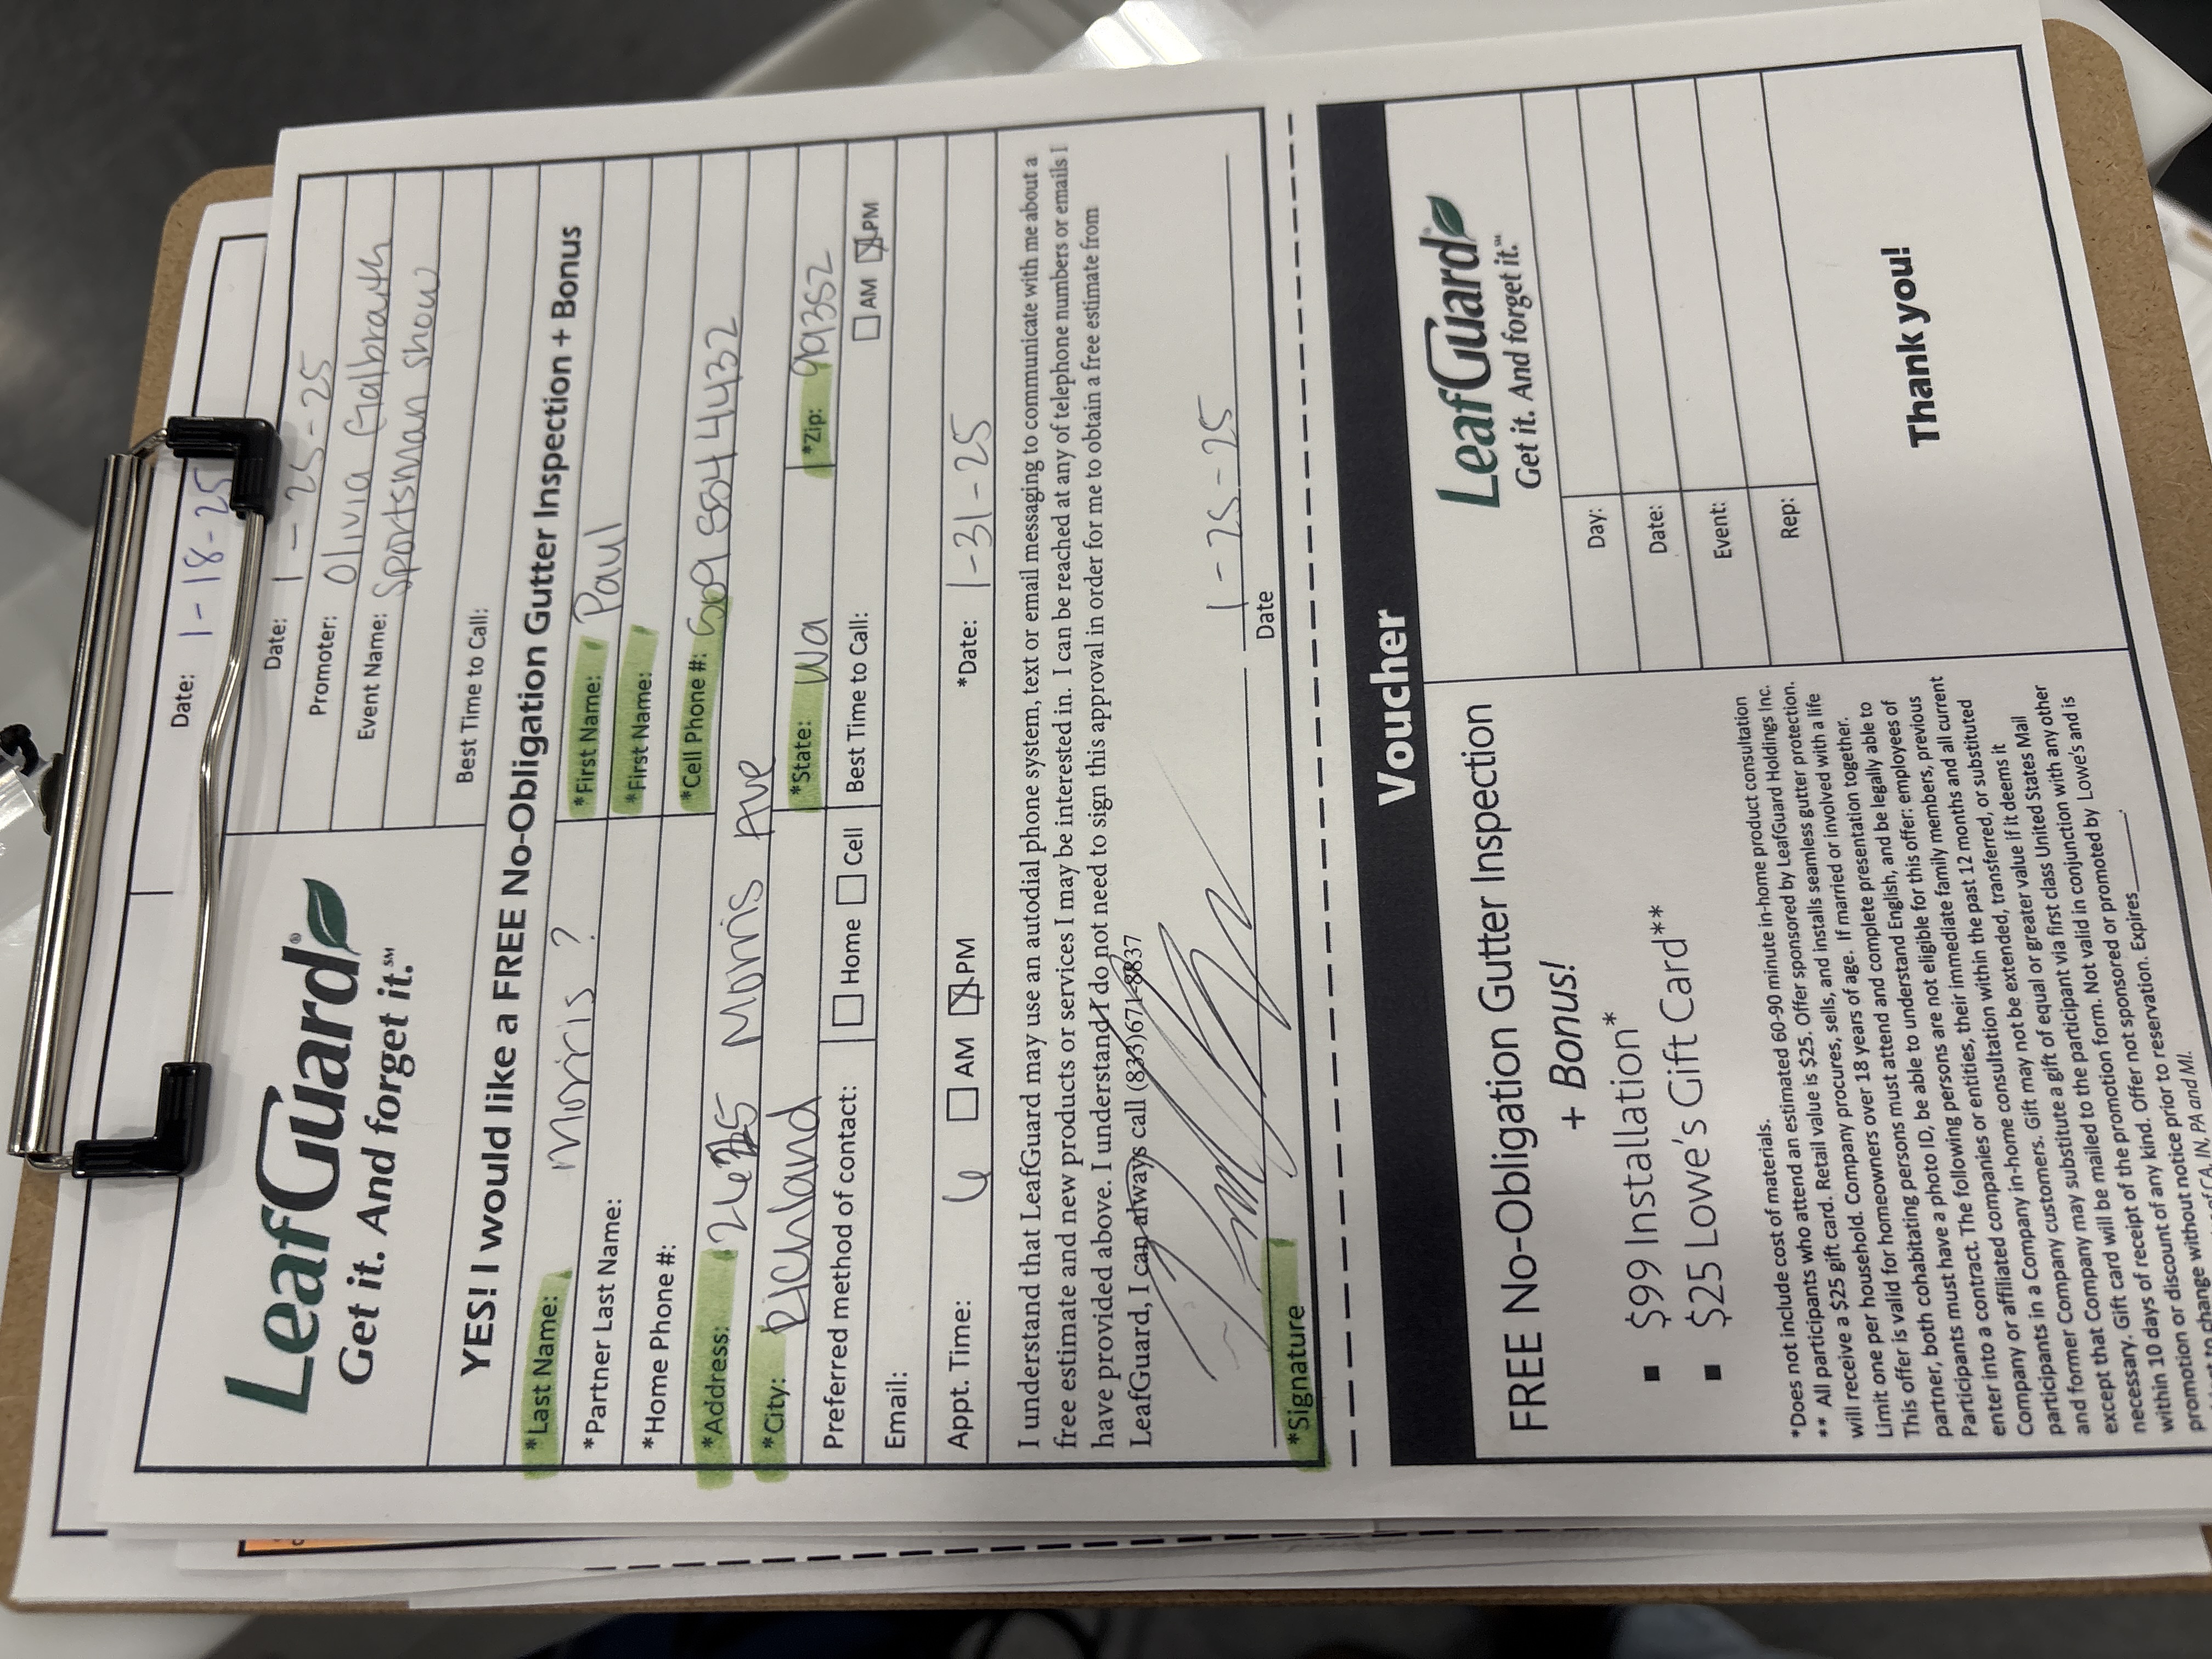 Date: 1-18-25
LeafGuard®
Get it. And forget it.℠
Date: 1-25-25
Promoter: Olivia Galbraith
Event Name: Sportsman Show
Best Time to Call:
YES! I would like a FREE No-Obligation Gutter Inspection + Bonus
*Last Name: Morris ?
*First Name: Paul
*Partner Last Name:
*First Name:
*Home Phone #:
*Cell Phone #: 509 554 4432
*Address: Morris Ave
*City: Richland
*State: Wa
*Zip: 99352
Preferred method of contact: Home Cell
Best Time to Call: AM PM
Email:
Appt. Time: 6 AM PM
*Date: 1-31-25
I understand that LeafGuard may use an autodial phone system, text or email messaging to communicate with me about a
free estimate and new products or services I may be interested in. I can be reached at any of telephone numbers or emails I
have provided above. I understand I do not need to sign this approval in order for me to obtain a free estimate from
LeafGuard, I can always call (833)671-8837
1-25-25
*Signature
Date
Voucher
FREE No-Obligation Gutter Inspection
+ Bonus!
▪ $99 Installation*
▪ $25 Lowe's Gift Card**
*Does not include cost of materials.
** All participants who attend an estimated 60-90 minute in-home product consultation
will receive a $25 gift card. Retail value is $25. Offer sponsored by LeafGuard Holdings Inc.
Limit one per household. Company procures, sells, and installs seamless gutter protection.
This offer is valid for homeowners over 18 years of age. If married or involved with a life
partner, both cohabitating persons must attend and complete presentation together.
Participants must have a photo ID, be able to understand English, and be legally able to
enter into a contract. The following persons are not eligible for this offer: employees of
Company or affiliated companies or entities, their immediate family members, previous
participants in a Company in-home consultation within the past 12 months and all current
and former Company customers. Gift may not be extended, transferred, or substituted
except that Company may substitute a gift of equal or greater value if it deems it
necessary. Gift card will be mailed to the participant via first class United States Mail
within 10 days of receipt of the promotion form. Not valid in conjunction with any other
promotion or discount of any kind. Offer not sponsored or promoted by Lowe's and is
to change without notice prior to reservation. Expires________.
of CA, IN, PA and MI.
LeafGuard®
Get it. And forget it.℠
Day:
Date:
Event:
Rep:
Thank you!